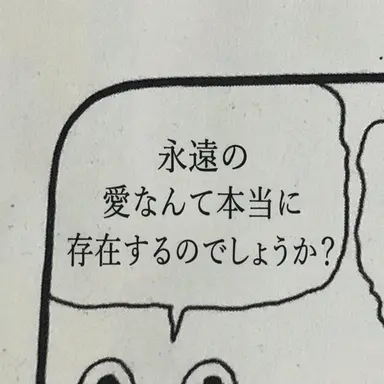 永遠の
愛なんて本当に
存在するのでしょうか?